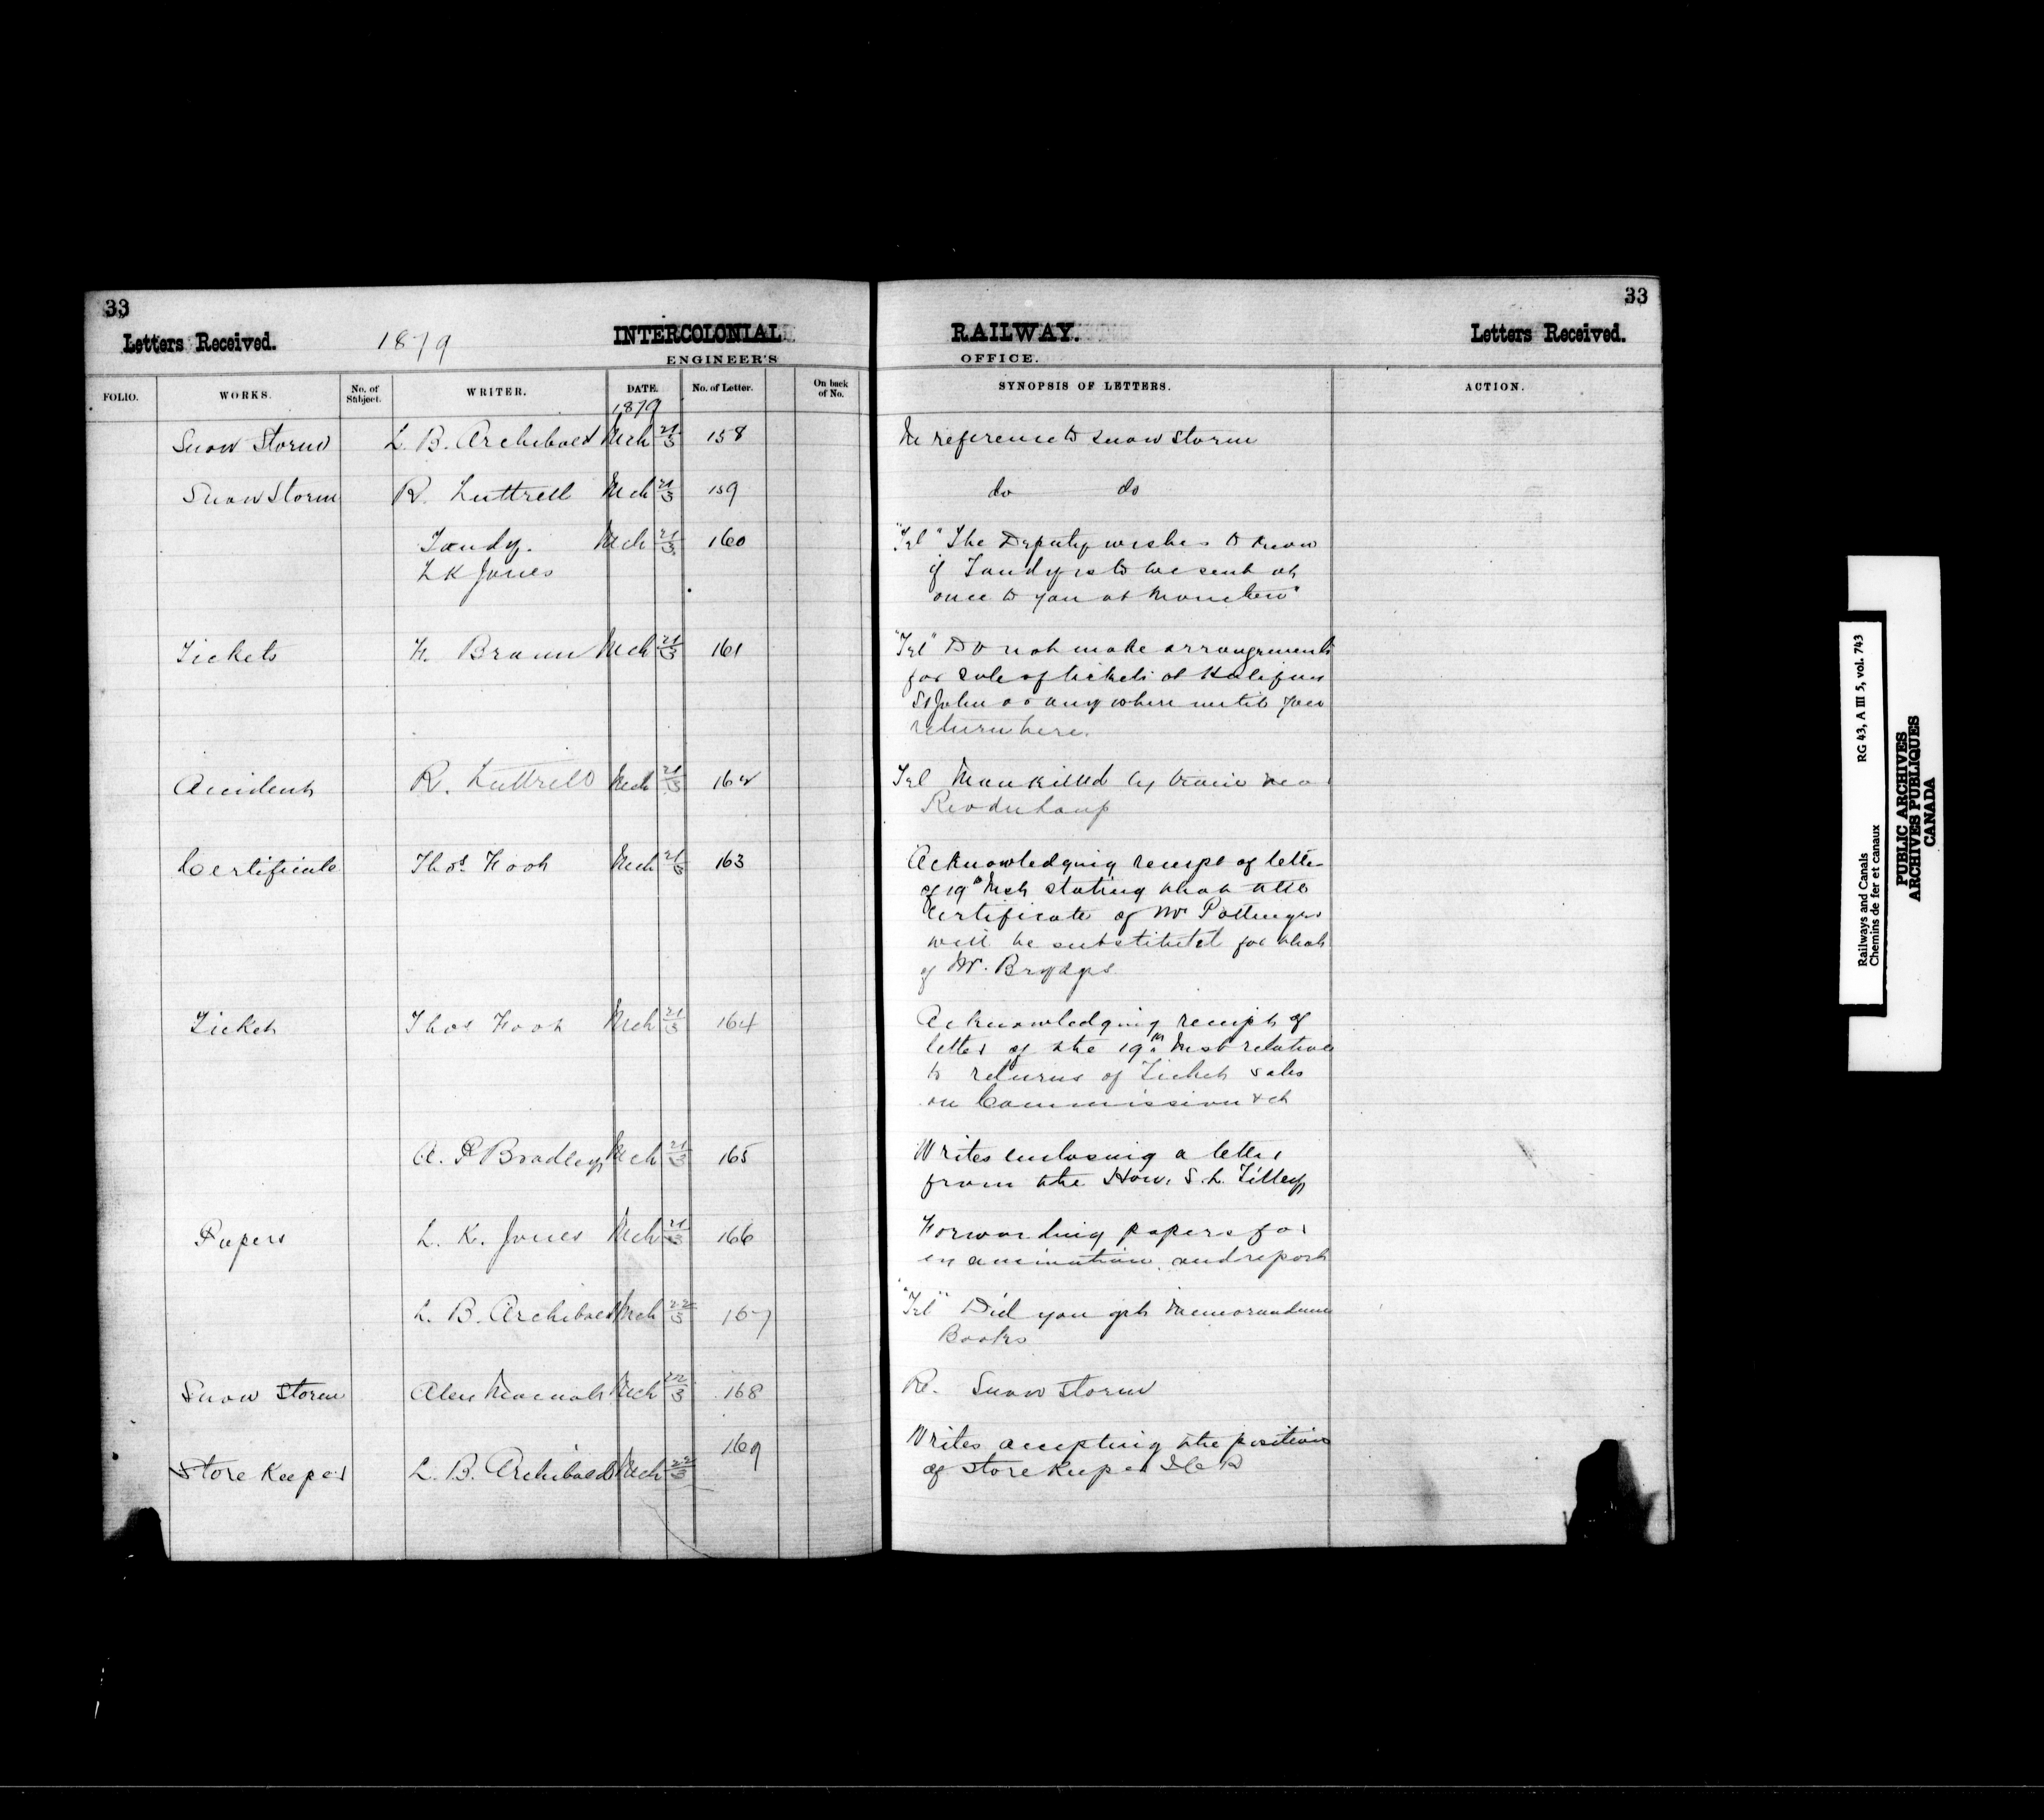 33 33
Letters Received. 1879 INTERCOLONIAL RAILWAY. Letters Received.
ENGINEER'S OFFICE.
FOLIO. WORKS. No. of Subject. WRITER. DATE. No. of Letter. On back of No. SYNOPSIS OF LETTERS. ACTION.
1879
Snow Storm L. B. Archibald Mch 21/3 158 In reference to snow storm
Snow Storm R. Luttrell Mch 21/3 159 do do
Tandy. Mch 21/3 160 "Tel" The Deputy wishes to know
L K Jones if Tandy is to be sent at
once to you at Moncton"
Tickets F. Braun Mch 21/3 161 "Tel" Do not make arrangements
for sale of tickets at Halifax
St John or anywhere until you
return here.
Accident R. Luttrell Mch 21/3 162 Tel Man killed by train near
Riv du Loup
Certificate Thos Foot Mch 21/3 163 Acknowledging receipt of letter
of 19th Inst stating that the
Certificate of Mr Pottinger
will be substituted for that
of Mr. Brydges
Ticket Thos Foot Mch 21/3 164 Acknowledging receipt of
letter of the 19th Inst relative
to returns of Ticket sales
on Commission &c
A. P Bradley Mch 21/3 165 Writes enclosing a letter
from the Hon. S. L. Tilley
Papers L. K. Jones Mch 21/3 166 Forwarding papers for
examination and report
L. B. Archibald Mch 22/3 167 "Tel" Did you get Memorandum
Books
Snow Storm Alex Mch 22/3 168 Re. Snow Storm
Store Keeper L. B. Archibald Mch 22/3 169 Writes accepting the position
of Store Keeper I C R
Railways and Canals RG 43, A III 5, vol. 743
Chemins de fer et canaux
PUBLIC ARCHIVES
ARCHIVES PUBLIQUES
CANADA